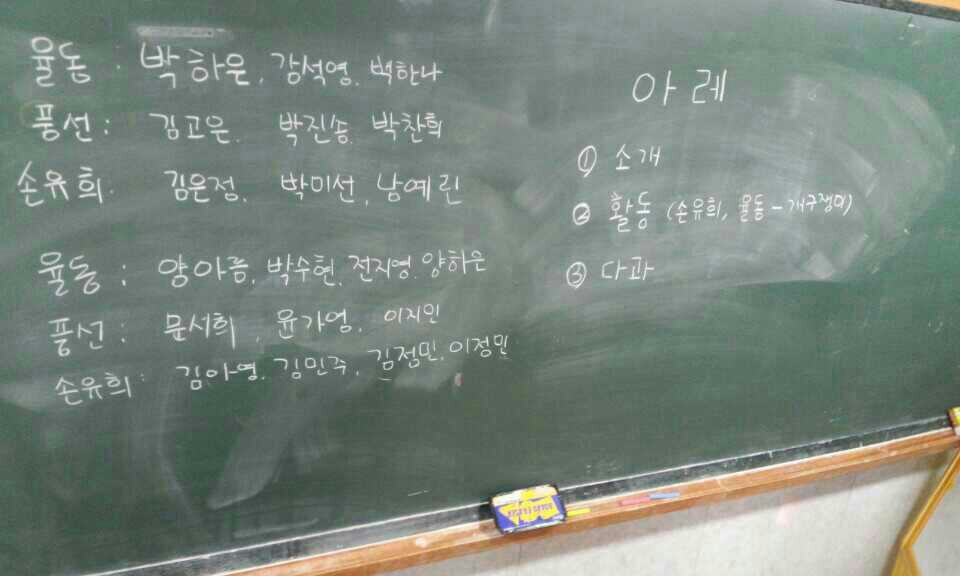 율동 : 박하은, 감석영, 백하나
풍선 : 김고은, 박진송, 박찬희
손유희 : 김은정, 박미선, 남예린
율동 : 양아름, 박수현, 전지영, 양하은
풍선 : 문서희, 윤가영, 이지인
손유희 : 김아영, 김민주, 김점민, 이정민
아레
① 소개
② 활동 (손유희, 율동 - 개구쟁이)
③ 다과